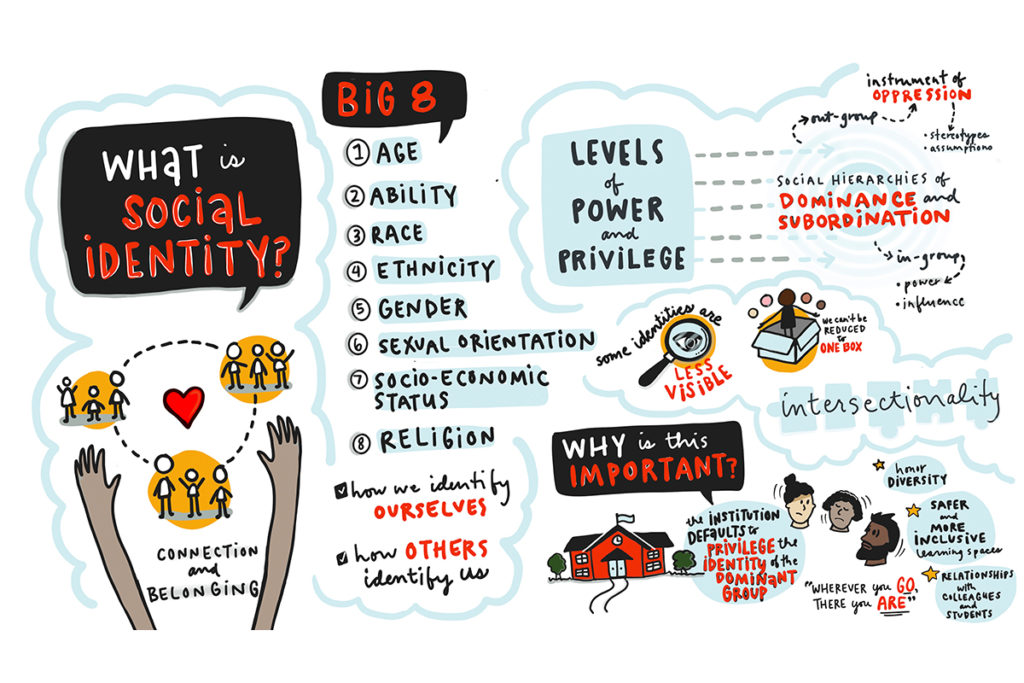 WHAT is
SOCIAL
IDENTITY?
CONNECTION
and
BELONGING
BIG 8
1 AGE
2 ABILITY
3 RACE
4 ETHNICITY
5 GENDER
6 SEXUAL ORIENTATION
7 SOCIO-ECONOMIC
STATUS
8 RELIGION
how we identify
OURSELVES
how OTHERS
identify us
LEVELS
of
POWER
and
PRIVILEGE
instrument of
OPPRESSION
out-group
• stereotypes
• assumptions
SOCIAL HIERARCHIES of
DOMINANCE and
SUBORDINATION
in-group
• power
• influence
some identities are
LESS
VISIBLE
we can't be
REDUCED
to
ONE BOX
intersectionality
WHY is this
IMPORTANT?
the INSTITUTION
DEFAULTS to
PRIVILEGE the
IDENTITY of the
DOMINANT
GROUP
"WHEREVER you GO,
THERE you ARE"
honor
DIVERSITY
SAFER
and
MORE
INCLUSIVE
learning spaces
RELATIONSHIPS
with
COLLEAGUES
and
STUDENTS